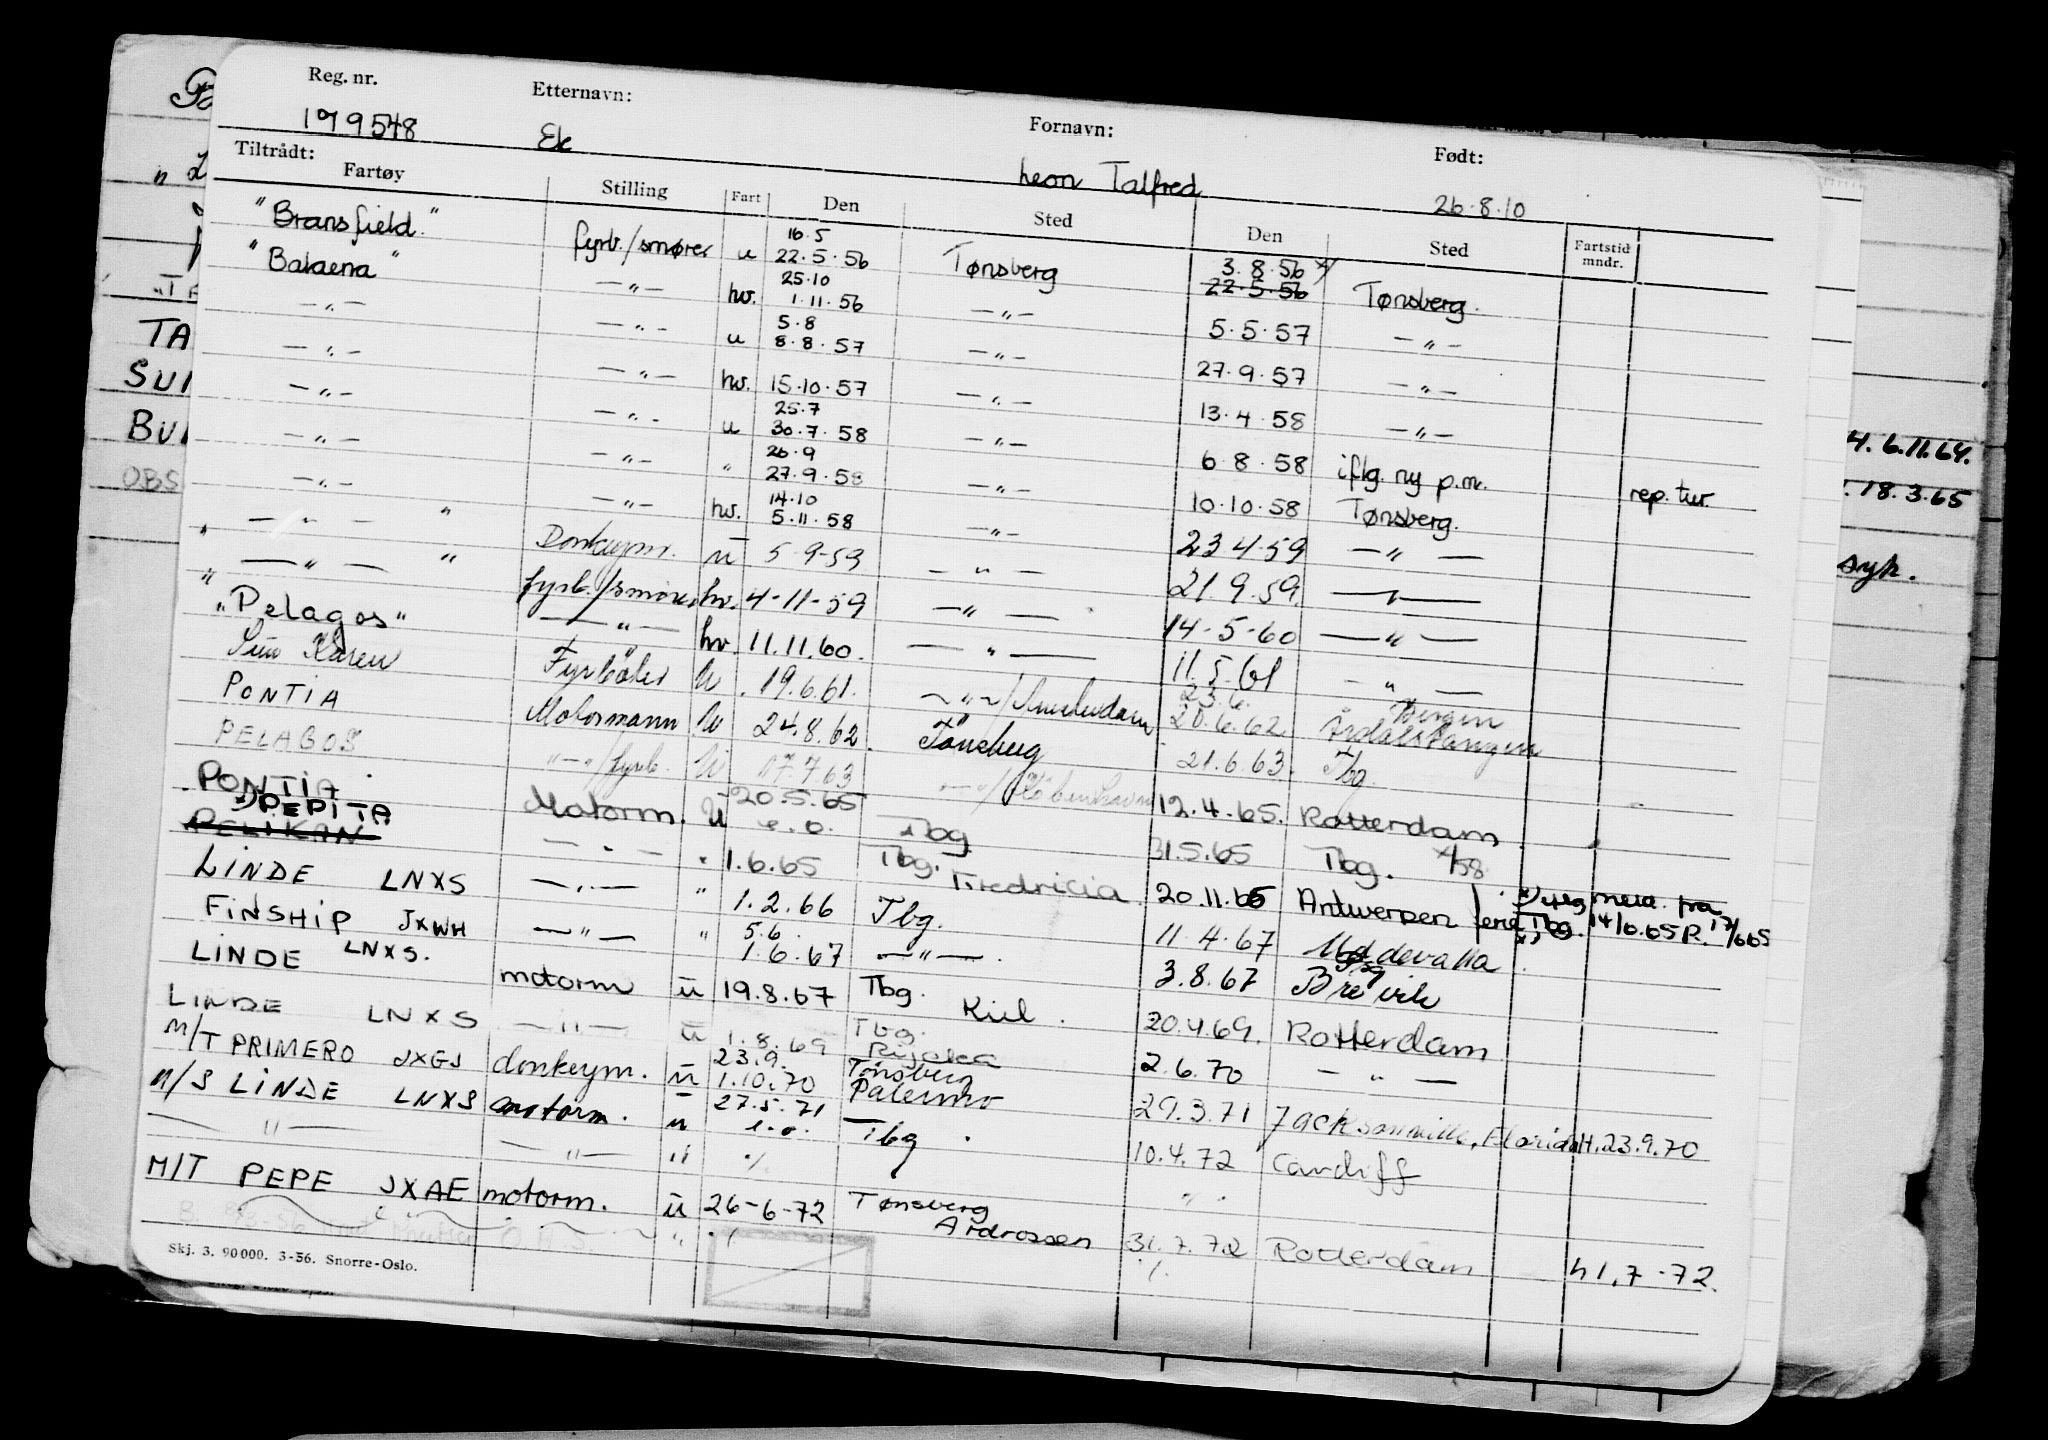 Reg. nr. Etternavn: Fornavn: Født:
179548 Ek Leon Talfred 26.8.10
Tiltrådt:
Fartøy Stilling Fart Den Sted Den Sted Fartstid mndr.
"Bransfield" fyrb./smører u 16.5 22.5.56 Tønsberg 3.8.56 x/ 22.5.56 Tønsberg.
"Balaena" -"- hv. 25.10 1.11.56 -"- 5.5.57 -"-
-"- -"- u 5.8 8.8.57 -"- 27.9.57 -"-
-"- -"- hv. 15.10.57 -"- 13.4.58 -"-
-"- -"- u 25.7 30.7.58 -"- 6.8.58 iflg. ny p.m. rep. tur.
-"- -"- " 26.9 27.9.58 -"- 10.10.58 Tønsberg.
-"- -"- hv. 14.10 5.11.58 -"- 23.4.59 -"-
-"- " Donkeym. u 5-9-59 -"- 21.9.59. -"-
" -"- " fyrb./smører hv. 4-11-59 -"- 14-5-60 -"-
" "Pelagos" -"- hv. 11.11.60. -"- 11.5.61 -"-
Sun Karen Fyrbøter U 19.6.61. -"-/Amsterdam 23.6. 20.6.62 Bergen Årdalstangen
PONTIA Motormann U 24.8.62. Tønsberg 21.6.63. Tbg.
PELAGOS "-"/fyrb. U 17.7.63 -"-/København 12.4.65. Rotterdam
PONTIA Motorm. U 20.5.65 e.o. Tbg 31.5.65 Tbg. x/58
x) PEPITA PELIKAN -"- " 1.6.65 Tbg. Fredricia 20.11.65 Antwerpen
LINDE LNXS -"- " 1.2.66 Tbg. 11.4.67 Uddevalla
FINSHIP JXWH -"- " 5.6. 1.6.67 -"-. 3.8.67 Brevik
LINDE LNXS. motorm u 19.8.67 Tbg. Kiel. 20.4.69. Rotterdam
LINDE LNXS -"- u 1.8.69 Tbg. Rijeka 2.6.70 -"-
M/T PRIMERO JXGJ donkeym. u 23.9. 1.10.70 Tønsberg Palermo 29.3.71 Jacksonville, Florida H. 23.9.70
M/S LINDE LNXS motorm. u 27.5.71 e.o. Tbg. 10.4.72 Cardiff
-"- -"- " ./. ".
M/T PEPE JXAE motorm. u 26-6-72 Tønsberg Ardrossen 31.7.72 Rotterdam h 1.7-72.
" ./. ./.
Skj. 3. 90000. 3-56. Snorre-Oslo.
TA
SUI
BUI
OBS
4. 6.11.64.
18.3.65
syk.